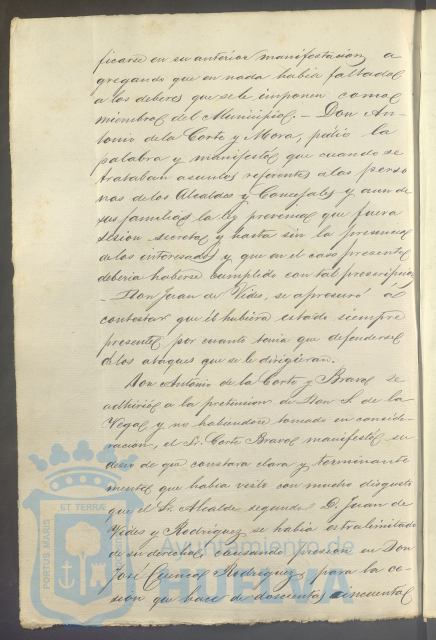 ficarse en su anterior manifestacion, a
gregando que en nada habia faltado
a los deberes que se le imponen como
miembro del Municipio. — Don An-
tonio de la Corte y Mora, pidió la
palabra y manifestó que cuando se
trataban asuntos referentes a las perso
nas de los Alcaldes y Concejales y aun de
sus familias la ley previene que fuera
sesion secreta y hasta sin la presencia
de los interesados y que en el caso presente
deberia haberse cumplido con tal prescripcion
— Don Juan de Vides, se apresuró á
contestar que él hubiera estado siempre
presente por cuanto tenia que defenderse
de los ataques que se le dirigieran.
Don Antonio de la Corte y Bravo se
adhirió a la pretension de Don S. de la
Vega y no habiendose tomado en conside-
racion, el Sr. Corte Bravo manifestó su
deseo de que constara clara y terminante
mente que habia visto con mucho disgusto
que el Sr. Alcalde segundo D. Juan de
Vides y Rodriguez se habia estralimitado
de su derecho, causando presion en Don
José Cuenca Rodriguez para la ce-
sion que hace de doscientas cincuenta
PORTUS MARIS
ET TERRAE
Ayuntamiento de
HUELVA